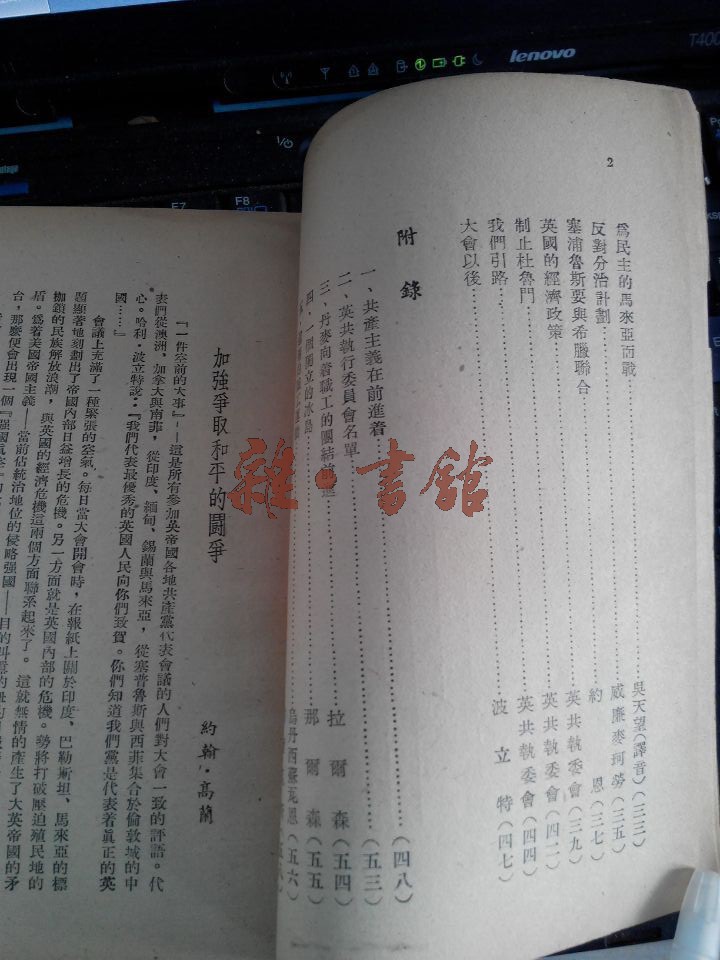 lenovo
T400
F7
F8
2
為民主的馬來亞而戰……吳天望(譯音)(三三)
反對分治計劃……威廉麥珂勞(三五)
塞浦魯斯要與希臘聯合……約恩(三七)
英國的經濟政策……英共執委會(三九)
制止杜魯門……英共執委會(四二)
我們引路……英共執委會(四四)
大會以後……波立特(四七)
附錄
一、共產主義在前進着……(四八)
二、英共執行委員會名單……(五三)
三、丹麥向着職工的團結前進……拉爾森(五四)
四、一個獨立的冰島……那爾森(五五)
(五六)
加強爭取和平的鬪爭
約翰・高蘭
『一件空前的大事』——這是所有參加英帝國各地共產黨代表會議的人們對大會一致的評語。代
表們從澳洲、加拿大與南非,從印度、緬甸、錫蘭與馬來亞,從塞普魯斯與西菲集合於倫敦城的中
心。哈利・波立特說:『我們代表最優秀的英國人民向你們致賀。你們知道我們黨是代表着眞正的英
國……』
會議上充滿了一種緊張的空氣。每日當大會開會時,在報紙上關於印度、巴勒斯坦、馬來亞的標
題顯著地刻劃出了帝國內部日益增長的危機。另一方面就是英國內部的危機。勢將打破壓迫殖民地的
枷鎖的民族解放浪潮,與英國的經濟危機這兩個方面聯系起來了。這就無情的產生了大英帝國的矛
盾。爲着美國帝國主義——當前佔統治地位的侵略强國——目的
台,那麼便會出現一個『强國
雜・書館